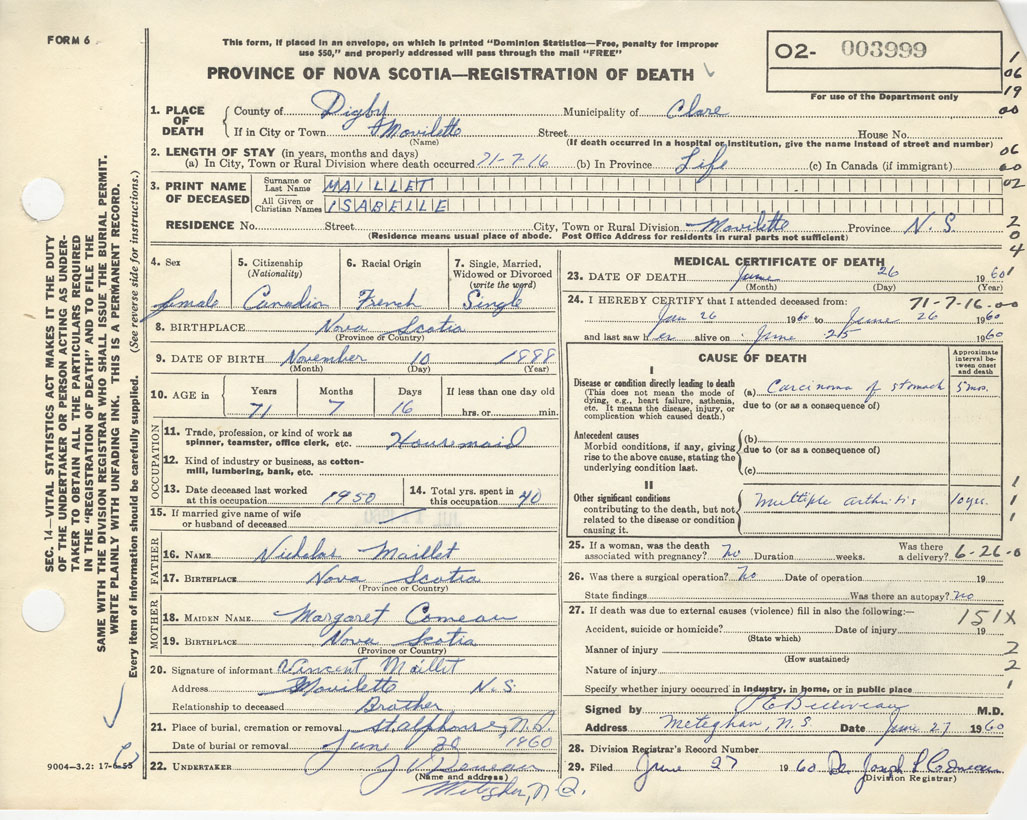 FORM 6
This form, if placed in an envelope, on which is printed "Dominion Statistics—Free, penalty for improper
use $50," and properly addressed will pass through the mail "FREE"
PROVINCE OF NOVA SCOTIA—REGISTRATION OF DEATH
O2- 003999
For use of the Department only
1
06
19
00
06
60
02
2
0
4
1. PLACE OF DEATH
County of Digby Municipality of Clare
If in City or Town Mavilette Street House No.
(Name) (If death occurred in a hospital or institution, give the name instead of street and number)
2. LENGTH OF STAY (in years, months and days)
(a) In City, Town or Rural Division where death occurred 71-7-16 (b) In Province Life (c) In Canada (if immigrant)
3. PRINT NAME OF DECEASED
Surname or Last Name MAILLET
All Given or Christian Names ISABELLE
RESIDENCE No. Street City, Town or Rural Division Mavilette Province N.S.
(Residence means usual place of abode. Post Office Address for residents in rural parts not sufficient)
SEC. 14—VITAL STATISTICS ACT MAKES IT THE DUTY
OF THE UNDERTAKER OR PERSON ACTING AS UNDER-
TAKER TO OBTAIN ALL THE PARTICULARS REQUIRED
IN THE "REGISTRATION OF DEATH" AND TO FILE THE
SAME WITH THE DIVISION REGISTRAR WHO SHALL ISSUE THE BURIAL PERMIT.
WRITE PLAINLY WITH UNFADING INK. THIS IS A PERMANENT RECORD.
Every item of information should be carefully supplied. (See reverse side for instructions.)
4. Sex
female
5. Citizenship
(Nationality)
Canadian
6. Racial Origin
French
7. Single, Married,
Widowed or Divorced
(write the word)
Single
8. BIRTHPLACE Nova Scotia
(Province or Country)
9. DATE OF BIRTH November 10 1888
(Month) (Day) (Year)
10. AGE in Years Months Days If less than one day
71 7 16 hrs. or min.
OCCUPATION
11. Trade, profession, or kind of work as
spinner, teamster, office clerk, etc. Housemaid
12. Kind of industry or business, as cotton-
mill, lumbering, bank, etc.
13. Date deceased last worked
at this occupation 1950
14. Total yrs. spent in
this occupation 40
15. If married give name of wife
or husband of deceased
FATHER
16. NAME Nicholas Maillet
17. BIRTHPLACE Nova Scotia
(Province or Country)
MOTHER
18. MAIDEN NAME Margaret Comeau
19. BIRTHPLACE Nova Scotia
(Province or Country)
20. Signature of informant Vincent Maillet
Address Mavilette N.S.
Relationship to deceased Brother
21. Place of burial, cremation or removal St Alphonse, N.S.
Date of burial or removal June 1960
22. UNDERTAKER
(Name and address)
Meteghan, N.S.
9004-3.2: 17-6-55
MEDICAL CERTIFICATE OF DEATH
23. DATE OF DEATH June 26 1960
(Month) (Day) (Year)
71-7-16-00
24. I HEREBY CERTIFY that I attended deceased from:
Jan 26 1960 to June 26 1960
and last saw her alive on June 25 1960
CAUSE OF DEATH
Approximate
interval be-
tween onset
and death
I
Disease or condition directly leading to death
(This does not mean the mode of
dying, e.g., heart failure, asthenia,
etc. It means the disease, injury, or
complication which caused death.)
(a) Carcinoma of stomach 5 mos.
due to (or as a consequence of)
Antecedent causes
Morbid conditions, if any, giving
rise to the above cause, stating the
underlying condition last.
(b)
due to (or as a consequence of)
(c)
II
Other significant conditions
contributing to the death, but not
related to the disease or condition
causing it.
Multiple arthritis 10 yrs.
1
1
1
25. If a woman, was the death
associated with pregnancy? No Duration weeks. Was there
a delivery? 6-26-0
26. Was there a surgical operation? No Date of operation 19
State findings Was there an autopsy? No
27. If death was due to external causes (violence) fill in also the following:—
151X
Accident, suicide or homicide? Date of injury 19
(State which)
Manner of injury 2
(How sustained)
Nature of injury 2
Specify whether injury occurred in industry, in home, or in public place 1
Signed by M.D.
Address Meteghan, N.S Date June 27 1960
28. Division Registrar's Record Number
29. Filed June 27 1960 Joseph Comeau
(Division Registrar)